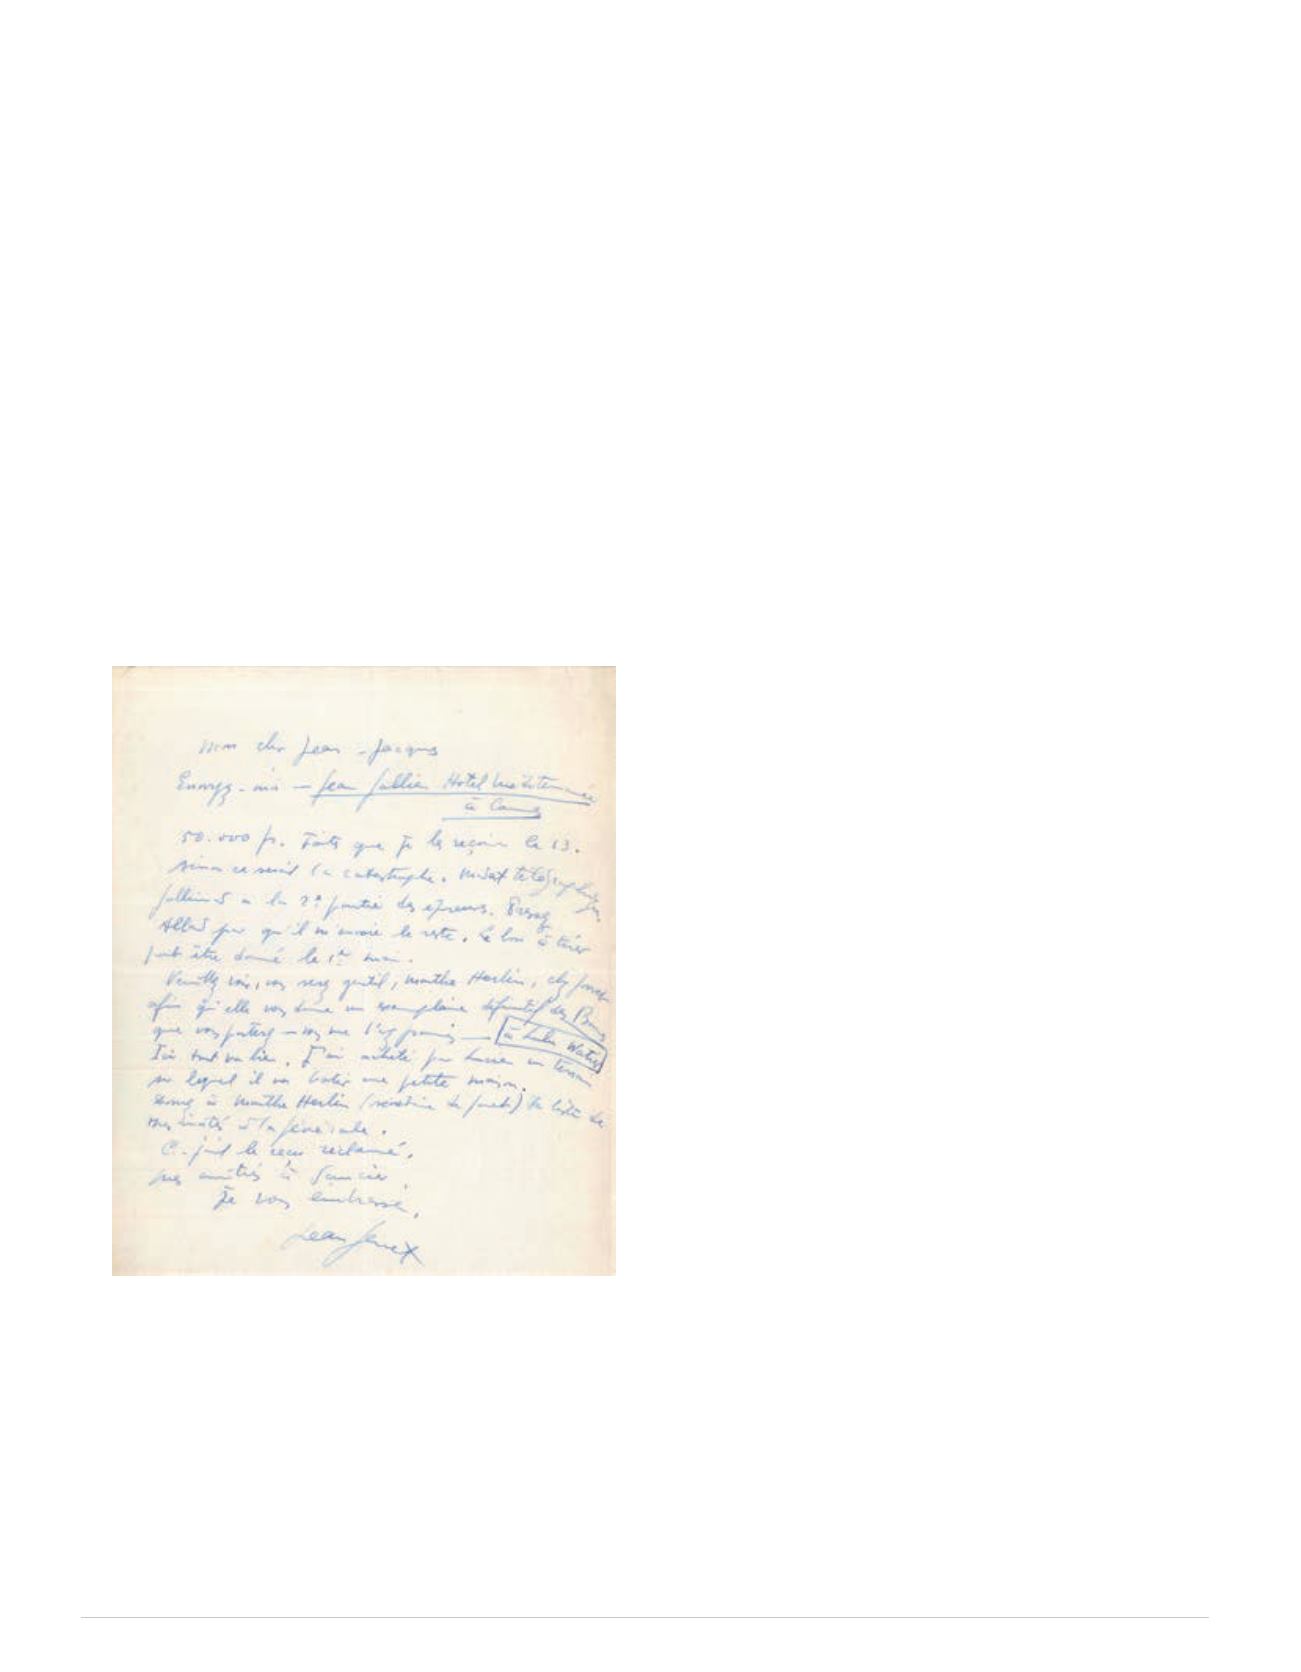 Mon cher Jean-Jacques
Envoyez-moi — Jean Gallien Hotel Méditerranée
à Cannes
50.000 frs. Faites que je les reçoive le 13.
Sinon ce serait la catastrophe. Mandat télégraphique.
a la 2e partie des épreuves. Pressez
pour qu'il m'envoie le reste. Le bon à tirer
doit être donné le 1er mai.
Veuillez voir, vous serez gentil, Marthe Herlin, chez Jouvet
afin qu'elle vous donne un exemplaire définitif des Bonnes
que vous porterez — vous me l'avez promis — à Lula Water
Ici tout va bien. J'ai acheté pour Lucien un terrain
sur lequel il va bâtir une petite maison.
Donnez à Marthe Herlin (secrétaire de Jouvet) la liste de
mes invités à la générale.
Ci-joint le reçu réclamé.
mes amitiés à
Je vous embrasse.
Jean Genet